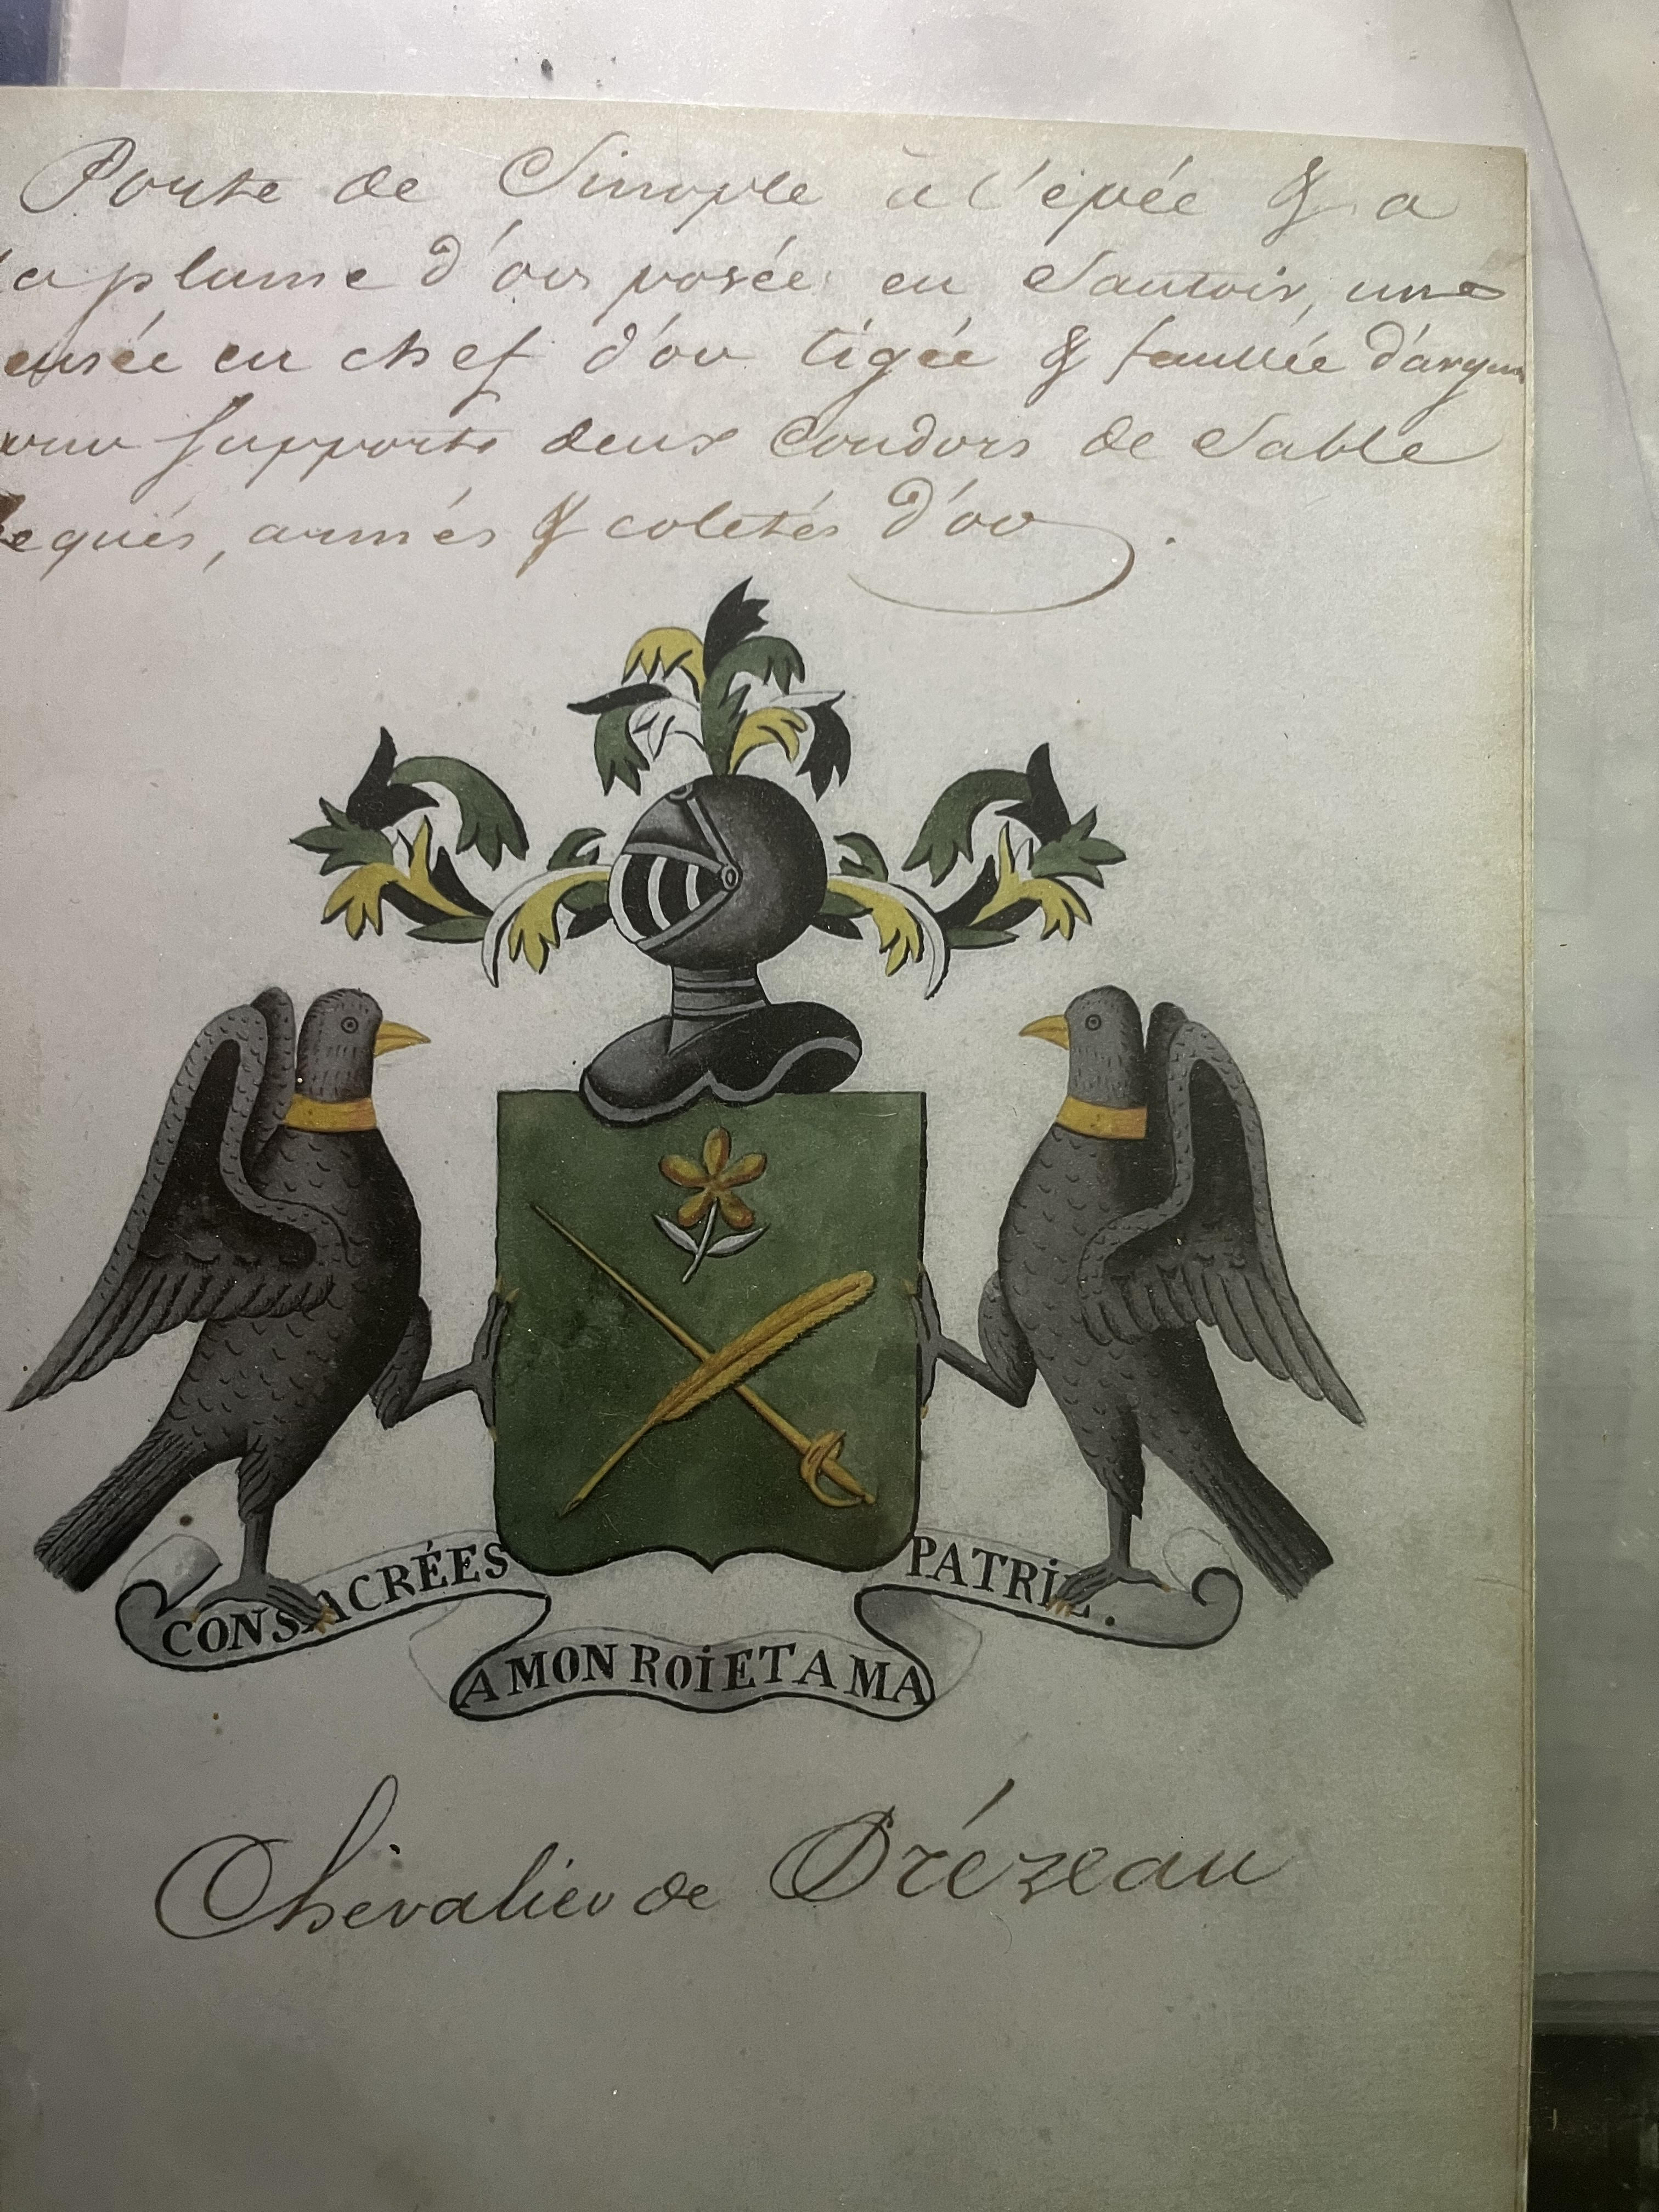 Porte de Sinople à l'épée & a
la plume d'or posée en Sautoir, une
ensée en chef d'or tigée & feuillée d'argen
our supports deux Condors de Sable
equés, armés & coletés d'or.
CONSACRÉES
A MON ROI ET A MA
PATRIE.
Chevalier de Drézeau